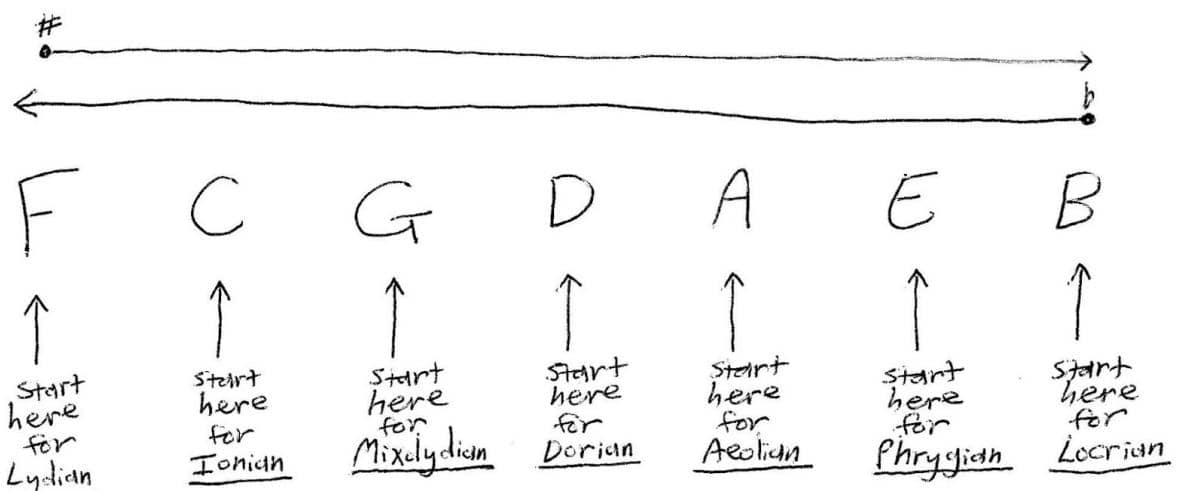 #
b
F C G D A E B
start here for Lydian
start here for Ionian
start here for Mixolydian
start here for Dorian
start here for Aeolian
start here for Phrygian
start here for Locrian